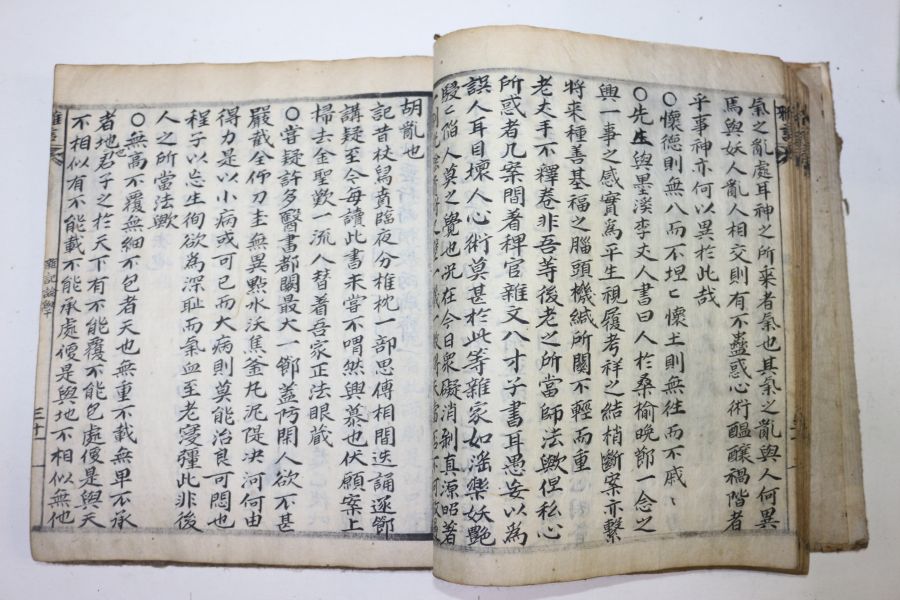 氣之亂處耳神之所來者氣也其氣之亂與人何異
焉與妖人亂人相交則有不蠱惑心術醞釀禍階者
乎事神亦何以異於此哉
○懷德則無入而不坦〻懷土則無往而不戚〻
○先生與墨溪李丈人書曰人於桑榆晚節一念之
興一事之感實爲平生視履考祥之結梢斷案亦繫
將來種善基福之腦頭機緘所關不輕而重
老丈手不釋卷非吾等後老之所當師法歟但私心
所惑者几案間著稗官雜文八才子書耳愚妄以爲
誤人耳目壞人心術莫甚於此等雜家如滛樂妖艶
駸〻陷人莫之覺也況在今日衆礙消剝真源昭著
胡亂也
記昔杖舃賁臨夜分椎枕一部思傳相間迭誦逐節
講疑至今每讀此書未嘗不喟然興慕也伏願案上
掃去金聖歎一流人替着吾家正法眼蔵
○嘗疑許多醫書都闕最大一節蓋防閑人欲不甚
嚴截全仰刀圭無異點水沃焦釜丸泥隄決河何由
得力是以小病或可已而大病則莫能治良可悶也
程子以忘生徇欲爲深恥而氣血至老寖彊此非後
人之所當法歟
○無高不覆無細不包者天也無重不載無卑不承
者地也君子之於天下有不能覆不能包處便是與天
不相似有不能載不能承處便是與地不相似無他
雜記論學
三十